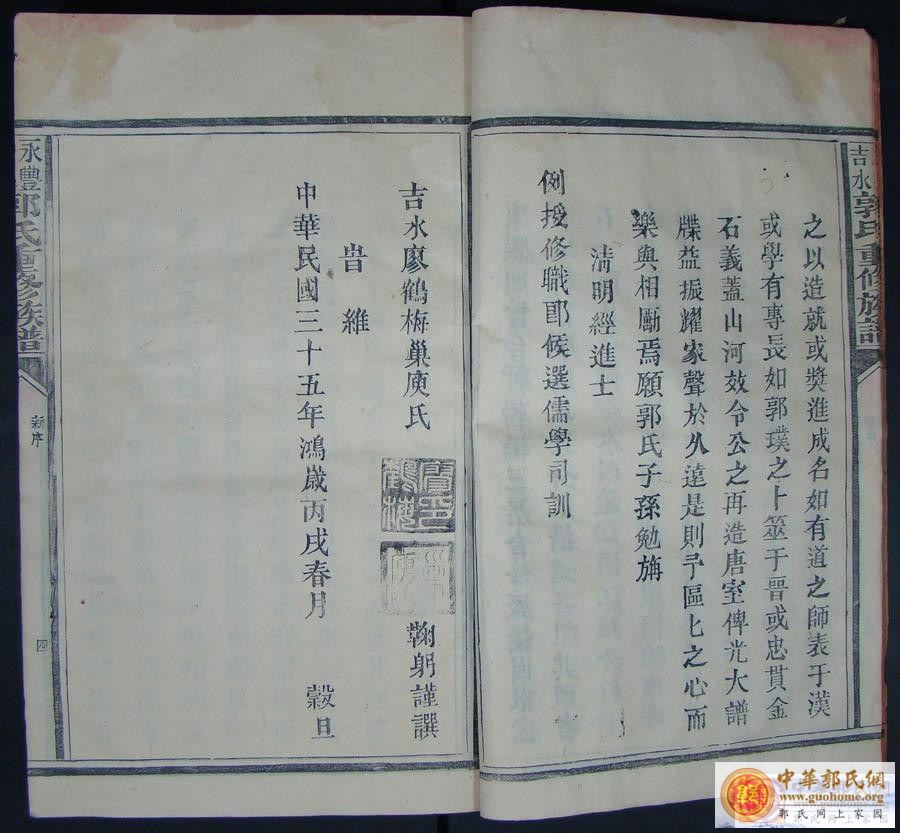 吉水郭氏重修族譜
之以造就或獎進成名如有道之師表于漢
或學有專長如郭璞之卜筮于晉或忠貫金
石義蓋山河效令公之再造唐室俾光大譜
牒益振耀家聲於久遠是則予區匕之心而
樂與相勵焉願郭氏子孫勉旃
清明經進士
例授修職郎候選儒學司訓
吉水廖鶴梅巢庾氏
鞠躬謹譔
旹維
中華民國三十五年鴻歲丙戌春月
穀旦
永豐郭氏重修族譜
新序
中華郭氏網
www.guohome.org
郭氏网上家园